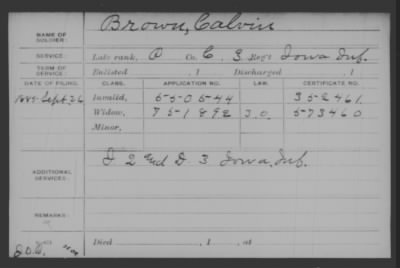 Brown, Calvin
NAME OF SOLDIER:
SERVICE: Late rank, P Co. C, 3 Reg't Iowa Inf.
TERM OF SERVICE: Enlisted , 1 Discharged , 1
DATE OF FILING. CLASS. APPLICATION NO. LAW. CERTIFICATE NO.
1885 Sept. 26 Invalid, 550544 352461
Widow, 751892 573460
Minor,
ADDITIONAL SERVICES: I 2 and D 3 Iowa Inf.
REMARKS:
Died , 1 , at